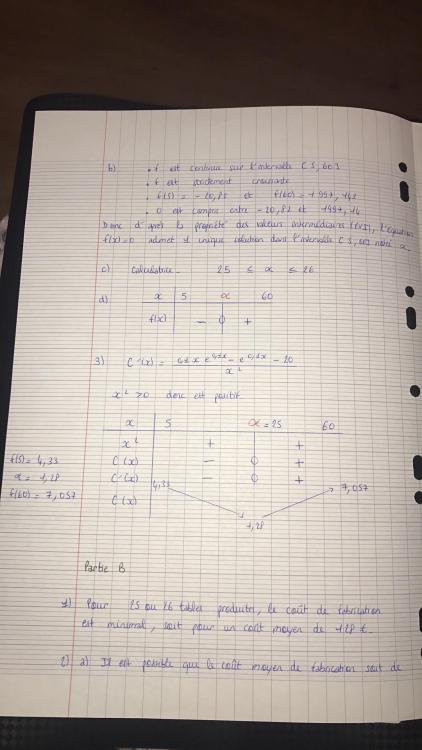 b) . f est continue sur l'intervalle [5,60]
. f est strictement croissante
. f(5) = -20,82 et f(60) = 1997,142
. 0 est compris entre -20,82 et 1997,14
Donc d'après la propriété des valeurs intermédiaires (TVI), l'équation
f(x)=0 admet 1 unique solution dans l'intervalle [5,60] noté α.
c) Calculatrice. 25 ≤ α ≤ 26
d) x 5 α 60
f(x) - 0 +
3) C'(x) = 0,1x e^0,1x - e^0,1x - 20
x²
x² > 0 donc est positif.
x 5 α = 25 60
x² + +
f(5) = 4,33 C(x) - 0 +
α = 1,28 C'(x) - 0 +
f(60) = 7,057 C(x) 4,33 1,28 7,057
Partie B
1) Pour 25 ou 26 tables produites, le coût de fabrication
est minimal, soit pour un coût moyen de 128 €.
2) a) Il est possible que le coût moyen de fabrication soit de